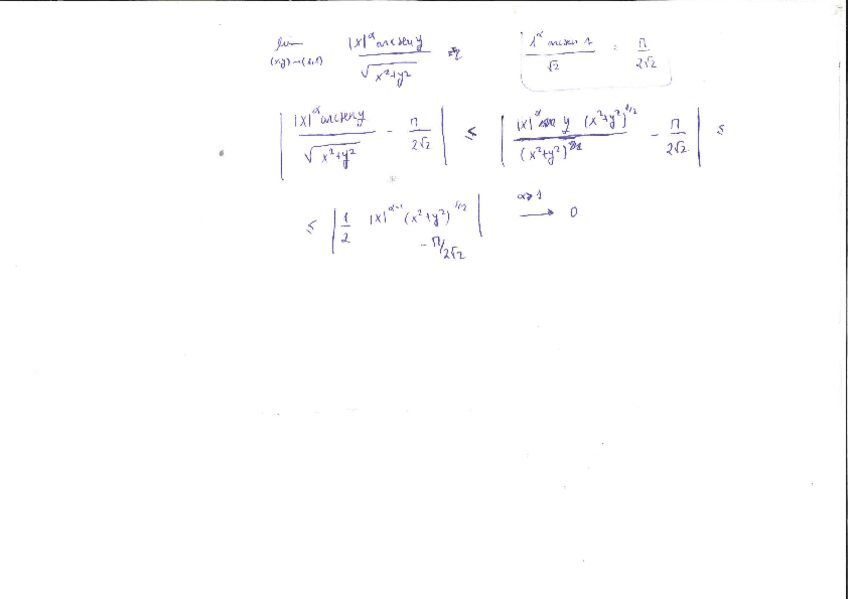 lim (x,y)→(1,1) |x|^α arcsen y / √(x²+y²) = 1^α arcsen 1 / √2 = π / 2√2
| |x|^α arcsen y / √(x²+y²) − π / 2√2 | ≤ | |x|^α y (x²+y²)^{1/2} / (x²+y²) − π / 2√2 | ≤
≤ | 1/2 |x|^{α-1} (x²+y²)^{1/2} − π/2√2 | α>1 → 0